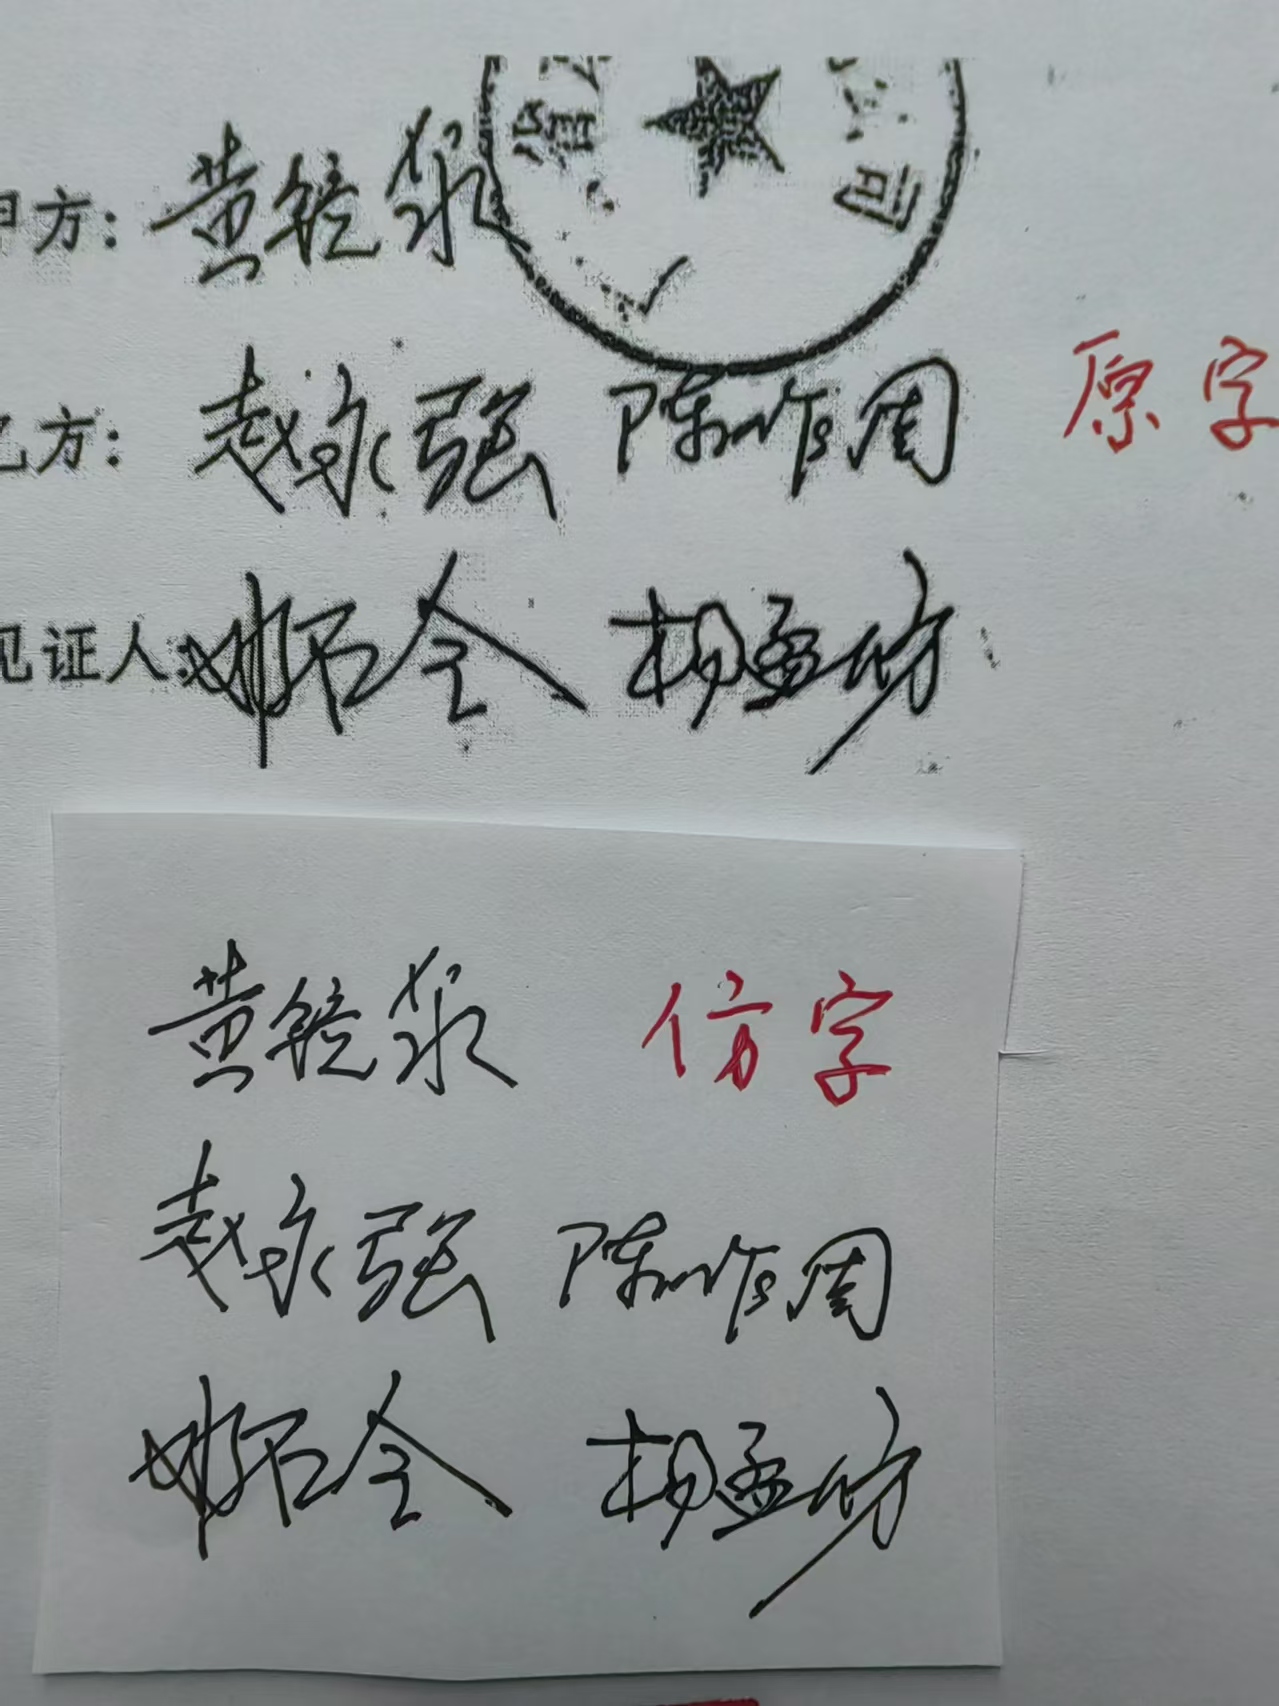 甲方：黄镜泉
乙方：赵永强 陈咋周
原字
见证人：姚石全 胡孟坊
黄镜泉 仿字
赵永强 陈咋周
姚石全 胡孟坊